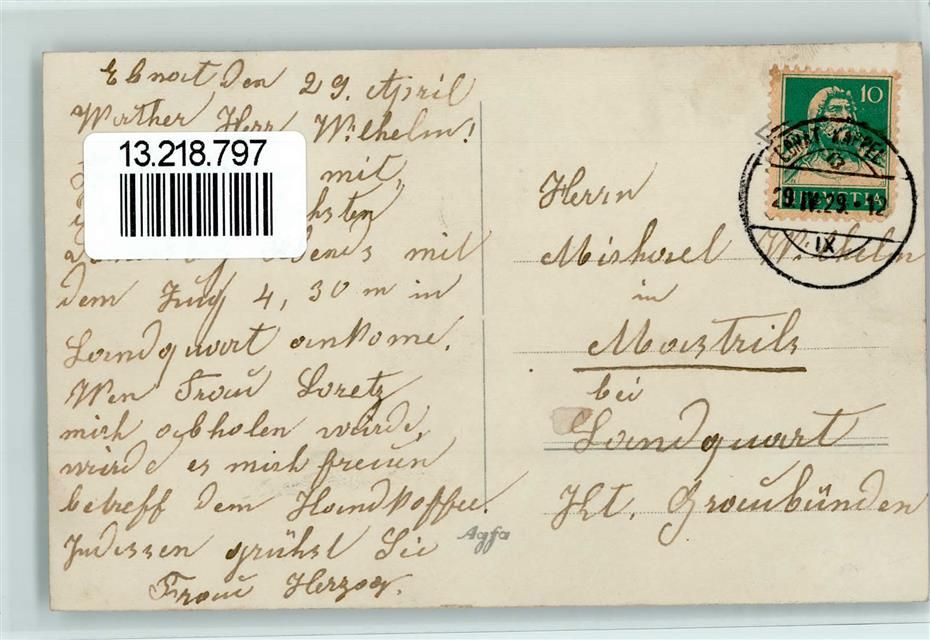 Ebnat den 29. April
Werther Herr Wilhelm!
13.218.797
mit,
chsten
Abends mit
dem Zug 4,30 m in
Landquart ankome.
Wen Frau Loretz
mich abholen würde,
würde es mich freuen
betreff dem Handkoffer.
Indessen grühst Sie
Frau Herzog.
Agfa
10
EBNAT-KAPPEL
29.IV.29.-12
IX
HELVETIA
Herrn
Michael Wilhelm
in
Mastrils
bei
Landquart
Kt. Graubünden